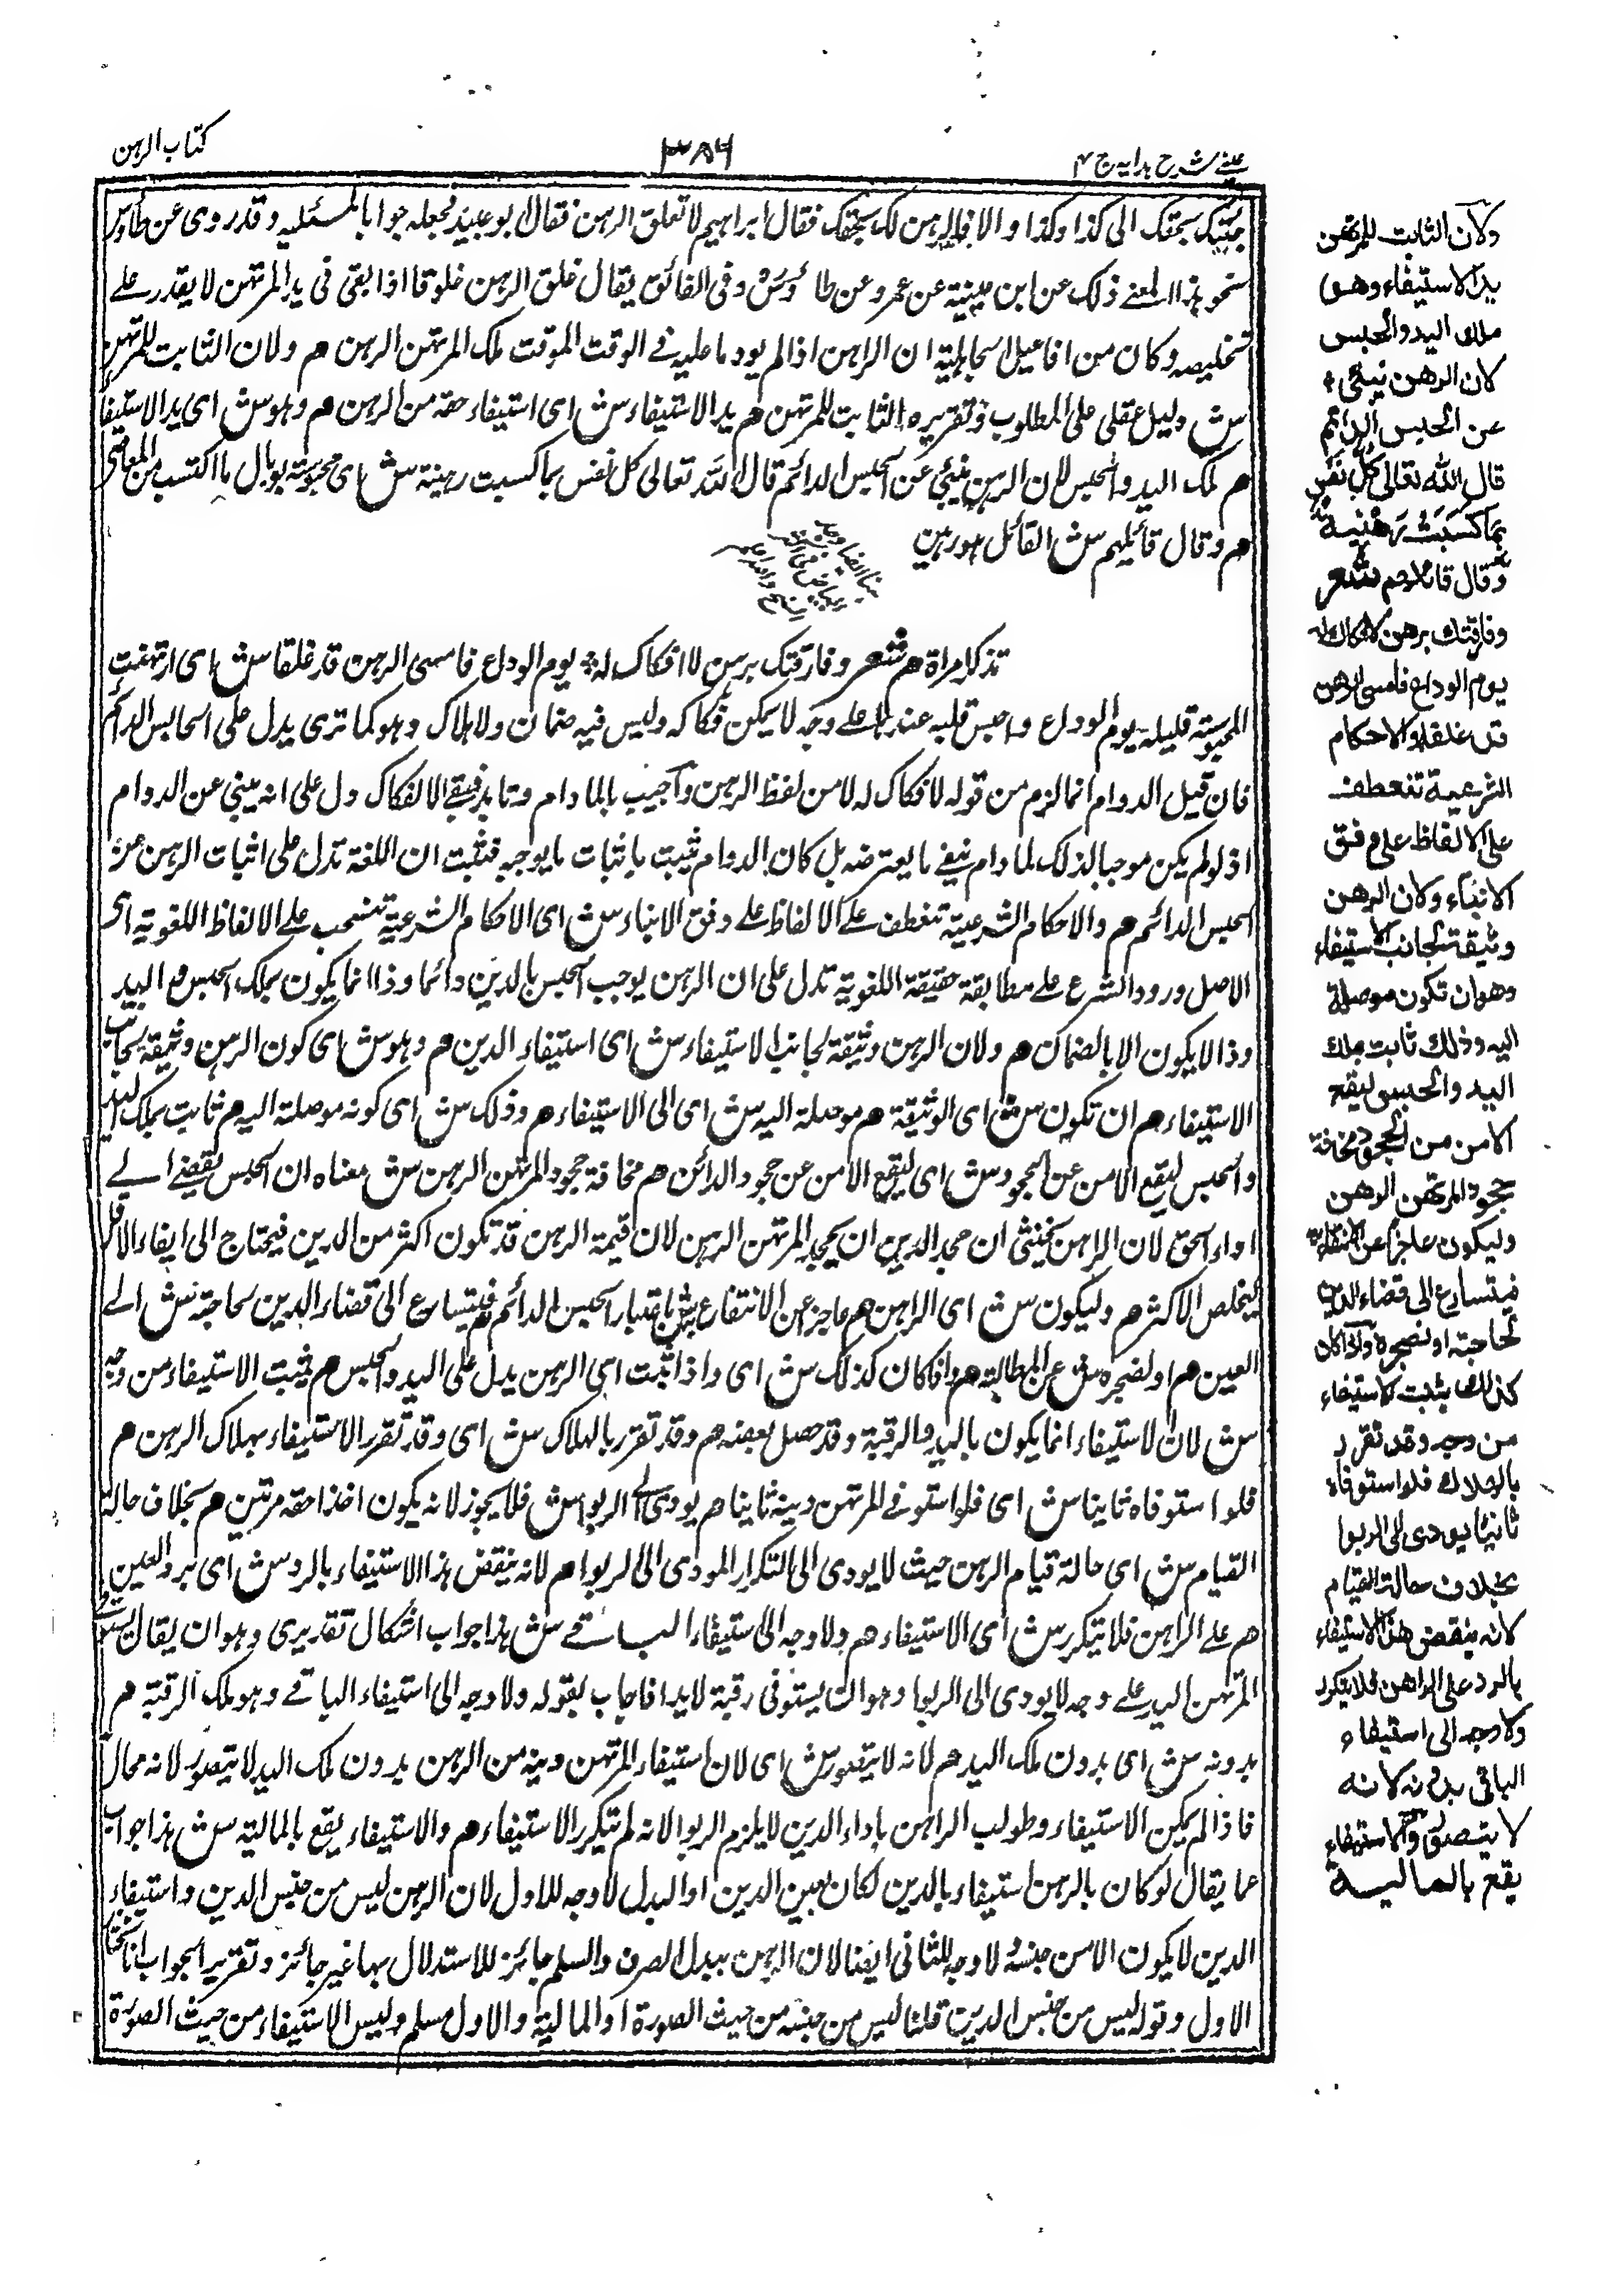 كتاب الرهن
٣٨٦
عینے شرح ہدایہ ج ٤
جئتک بحقک الی کذا وکذا والا فالرهن لک بحقک فقال ابراهیم لا تغلق الرهن فقال ابو عبید فجعله جوابا للمسئلہ وقدروی عن طاوس
نحو هذا المعنے ذلک عن ابن عیینة عن عمرو عن طاوس ش وفی الفائق یقال غلق الرهن غلوقا اذا بقی فی ید المرتهن لا یقدر علے
تخلیصہ وکان من افاعیل الجاهلیة ان الراهن اذا لم یود ما علیہ فے الوقت الموقت ملک المرتهن الرهن هم ولان الثابت للمرتهن
ش دلیل عقلی علی المطلوب وتقریره الثابت للمرتهن هم ید الاستیفاء ش ای استیفاء حقه من الرهن هم وهو ش ای ید الاستیفا
هم ملک الید والحبس لان الرهن ینبئ عن الحبس الدائم قال الله تعالی کل نفس بما کسبت رهینة ش ای محبوسة بوبال ما اکتسب من المعاصی
هم وقال قائلهم ش القائل هو زهیر
تذکر امراة هم شعر وفارقتک برهن لا فکاک له ؞ یوم الوداع فامسی الرهن قد غلقا ش ای ارتهنت
المحبوبة قلبه یوم الوداع واحبس قلبه عندها علے وجه لا یمکن فکاکه ولیس فیه ضمان ولا هلاک وهو کما تری یدل علی الحبس الدائم
فان قیل الدوام انما لزم من قوله لا فکاک له لا من لفظ الرهن واجیب بالما دام وتابد فبقے الانفکاک دل علی انه ینبی عن الدوام
اذ لو لم یکن موجبا لذلک لما دام بنفے ما یعترضه بل کان الدوام یثبت باثبات ما یوجبه فثبت ان اللغة تدل علی اثبات الرهن عن
الحبس الدائم هم والاحکام الشرعیة تنعطف علے الالفاظ علے وفق الانباء ش ای الاحکام الشرعیة تنسحب علے الالفاظ اللغویة ای
الاصل ورود الشرع علے مطابقة حقیقة اللغویة تدل علی ان الرهن یوجب الحبس بالدین دائما وذا انما یکون بملک الحبس والید
وذا لا یکون الا بالضمان هم ولان الرهن وثیقة لجانب الاستیفاء ش ای استیفاء الدین هم وهو ش ای کون الرهن وثیقة لجانب
الاستیفاء هم ان تکون ش ای الوثیقة هم موصلة الیه ش ای الی الاستیفاء هم وذلک ش ای کونه موصلة الیه هم ثابت بملک الید
والحبس لیقع الامن عن الجحود ش ای لیقع الامن عن جحود الدائن هم مخافة جحود المرتهن الرهن ش معناه ان الحبس یفضے الے
اداء الحق لان الراهن یخشی ان جحد الدین ان یجحد المرتهن الرهن لان قیمة الرهن قد تکون اکثر من الدین فیحتاج الی ایفاء الاقل
لیخلص الاکثر هم ولیکون ش ای الراهن هم عاجزا عن الانتفاع ش باعتبار الحبس الدائم هم فیتسارع الی قضاء الدین لحاجته ش الے
العین هم او لضجره ش عن المطالبة هم واذا کان کذلک ش ای واذا ثبت ای الرهن یدل علی الید والحبس هم یثبت الاستیفاء من وجه
ش لان الاستیفاء انما یکون بالید والرقبة وقد حصل بعضه هم وقد تقرر بالهلاک ش ای وقد تقرر الاستیفاء بهلاک الرهن هم
فلو استوفاه ثانیا ش ای فلو استوفے المرتهن دینه ثانیا هم یودی الی الربوا ش فلا یجوز لانه یکون اخذ احقه مرتین هم بخلاف حالة
القیام ش ای حالة قیام الرهن حیث لا یودی الی التکرار المودی الی الربوا هم لانه ینقض هذا الاستیفاء بالرد ش ای برد العین
هم علے الراهن فلا یتکرر ش ای الاستیفاء هم ولا وجه الی استیفاء الباقے ش هذا جواب اشکال تقدیری وهو ان یقال
المرتهن الید علے وجه لا یودی الی الربوا وهو ان یستوفی رقبة لا یدا فاجاب بقوله ولا وجه الی استیفاء الباقے وهو ملک الرقبة هم
بدونه ش ای بدون ملک الید هم لانه لا یتصور ش ای لان استیفاء المرتهن دینه من الرهن بدون ملک الید لا یتصور لانه محال
فاذا لم یمکن الاستیفاء وطولب الراهن باداء الدین لا یلزم الربوا لانه لم یتکرر الاستیفاء هم والاستیفاء یقع بالمالیة ش هذا جواب
عما یقال لو کان بالرهن استیفاء بالدین لکان بعین الدین او البدل لا وجه للاول لان الرهن لیس من جنس الدین واستیفاء
الدین لا یکون الا من جنسه لا وجه للثانی ایضا لان الرهن ببدل الصرف والسلم جائز للاستدلال بها غیر جائز وتقریر الجواب انا نختار
الاول وقوله لیس من جنس الدین قلنا لیس من جنسه من حیث الصورة او المالیة والاول مسلم ولیس الاستیفاء من حیث الصورة
ولان الثابت للمرتهن
ید الاستیفاء وهو
ملك الید والحبس
لان الرهن ینبئ
عن الحبس الدائم
قال الله تعالی کل نفس
بما کسبت رهینة
وقال قائلهم شعر
وفارقتك برهن لا فكاك له
یوم الوداع فامسی الرهن
قد غلقا والاحکام
الشرعیة تنعطف
علی الالفاظ علی وفق
الانباء ولان الرهن
وثیقة لجانب الاستیفاء
وهو ان تکون موصلة
الیه وذلك ثابت بملك
الید والحبس لیقع
الامن من الجحود مخافة
جحود المرتهن الرهن
ولیکون عاجزا عن الانتفاع به
فیتسارع الی قضاء الدین
لحاجته او لضجره واذا کان
کذلك یثبت الاستیفاء
من وجه وقد تقرر
بالهلاك فلو استوفاه
ثانیا یودی الی الربوا
بخلاف حالة القیام
لانه ینقض هذا الاستیفاء
بالرد علی الراهن فلا یتکرر
ولا وجه الی استیفاء
الباقی بدونه لانه
لا یتصور والاستیفاء
یقع بالمالیة